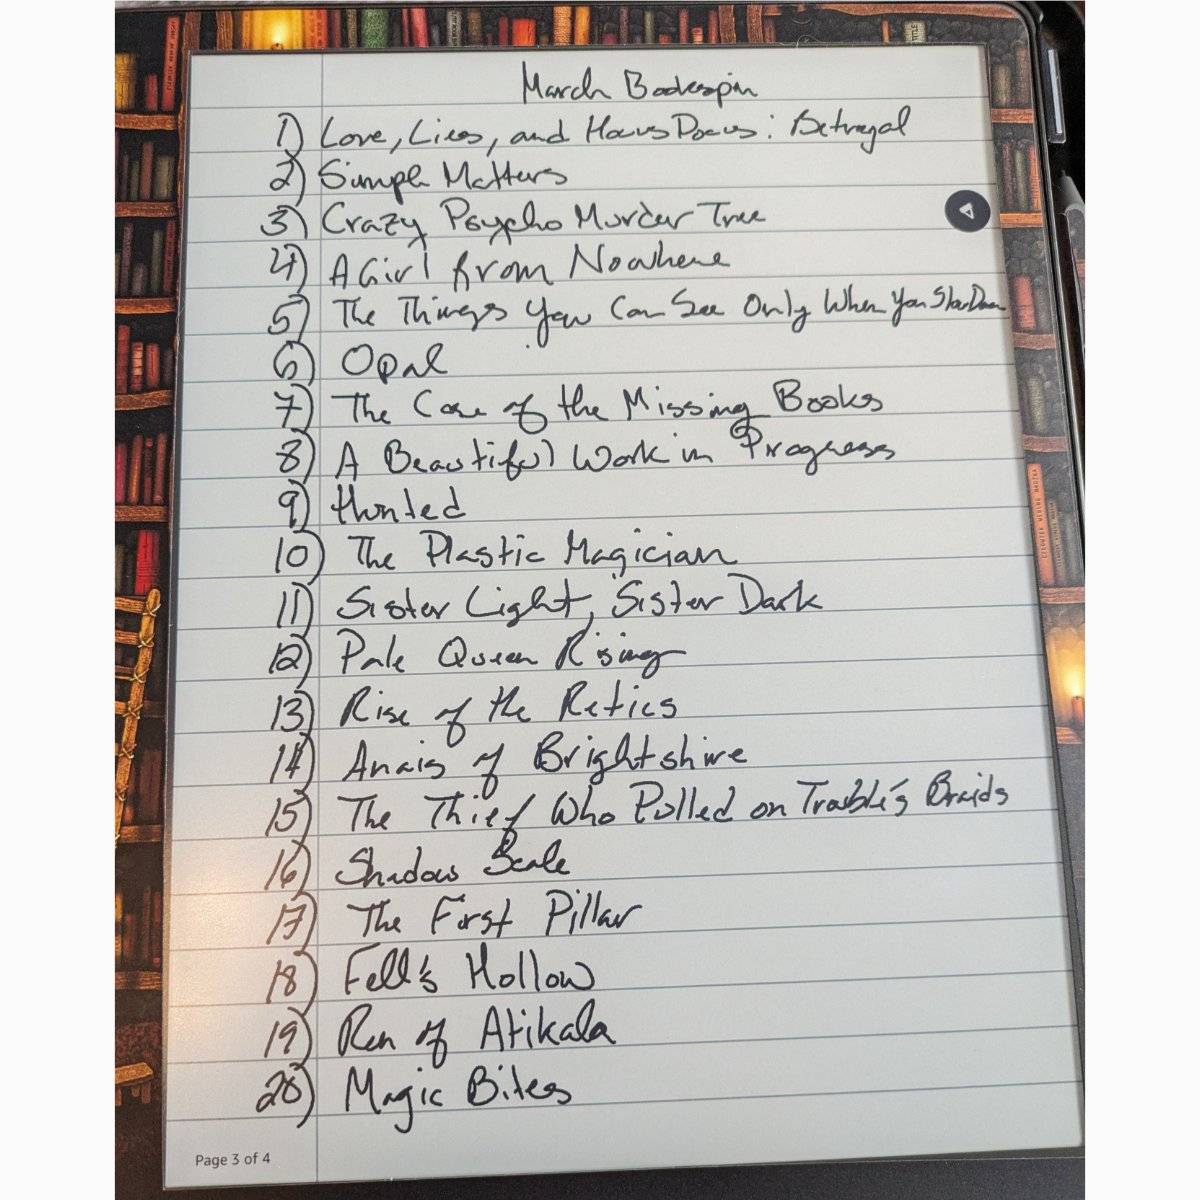 March Bookspin
1) Love, Lies, and Hocus Pocus: Betrayal
2) Simple Matters
3) Crazy Psycho Murder Tree
4) A Girl from Nowhere
5) The Things You Can See Only When You Slow Down
6) Opal
7) The Case of the Missing Books
8) A Beautiful Work in Progress
9) Hunted
10) The Plastic Magician
11) Sister Light, Sister Dark
12) Pale Queen Rising
13) Rise of the Retics
14) Anais of Brightshire
15) The Thief Who Pulled on Trouble's Braids
16) Shadow Scale
17) The First Pillar
18) Fell's Hollow
19) Ren of Atikala
20) Magic Bites
Page 3 of 4